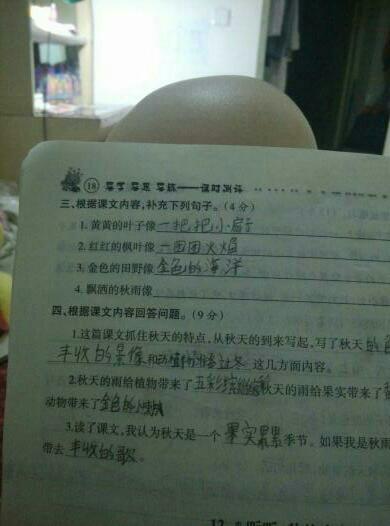 18 导学 导思 导练——课时测评
三、根据课文内容,补充下列句子。(4分)
1.黄黄的叶子像一把把小扇子
2.红红的枫叶像一团团火焰
3.金色的田野像金色的海洋
4.飘洒的秋雨像
四、根据课文内容回答问题。(9分)
1.这篇课文抓住秋天的特点,从秋天的到来写起,写了秋天的色
丰收的景像和动植物准备过冬 这几方面内容。
2.秋天的雨给植物带来了五彩缤纷 秋天的雨给果实带来了
动物带来了金色的小喇叭
3.读了课文,我认为秋天是一个果实累累季节。如果我是秋雨
带去丰收的歌。